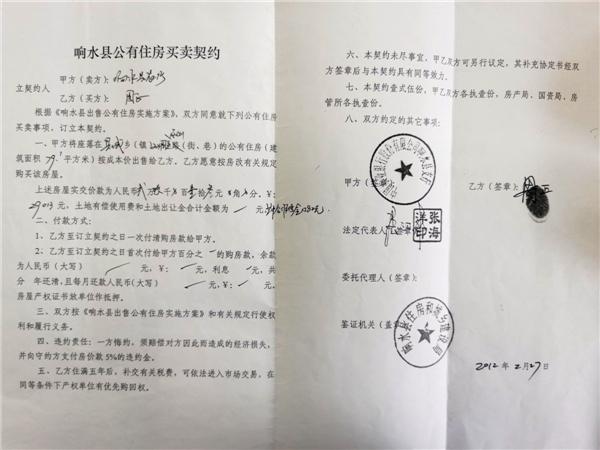 响水县公有住房买卖契约
甲方（卖方）：
立契约人
乙方（买方）：
根据《响水县出售公有住房实施方案》，双方同意就下列公有住房
买卖事项，订立本契约。
一、甲方将座落在 乡（镇） 路（街、巷）的公有住房（建
筑面积 平方米）按成本价出售给乙方。乙方愿意按房改有关规定
购买该房屋。
上述房屋实交价款为人民币 万 千 百 拾 元 角 分。￥：
29013 元，土地有偿使用费和土地出让金合计金额为 元
二、付款方式：
1、乙方至订立契约之日一次付清购房款给甲方。
2、乙方至订立契约之日首次付给甲方百分之 的购房款，余款
为人民币（大写） 元，￥： 元，利息 元，共
分 年还清，且每月还款人民币（大写） 元，￥： 元。
房屋产权证书放单位作抵押。
三、双方按《响水县出售公有住房实施方案》和有关规定行使权
利和履行义务。
四、违约责任：一方悔约，须赔偿对方因此而造成的经济损失，
并向守约方支付房价款 5%的违约金。
五、乙方住满五年后，补交有关税费，可依法进入市场交易，在
同等条件下产权单位有优先购回权。
六、本契约未尽事宜，甲乙双方可另行议定，其补充协定书经双
方签章后与本契约具有同等效力。
七、本契约壹式伍份，甲乙双方各执壹份，房产局、国资局、房
管所各执壹份。
八、双方约定的其它事项：
甲方（签章）
乙方（签章）：
法定代表人（签章）
张海洋印
委托代理人（签章）：
签证机关（盖章）
响水县住房和城乡建设局
2012 年 2 月 27 日